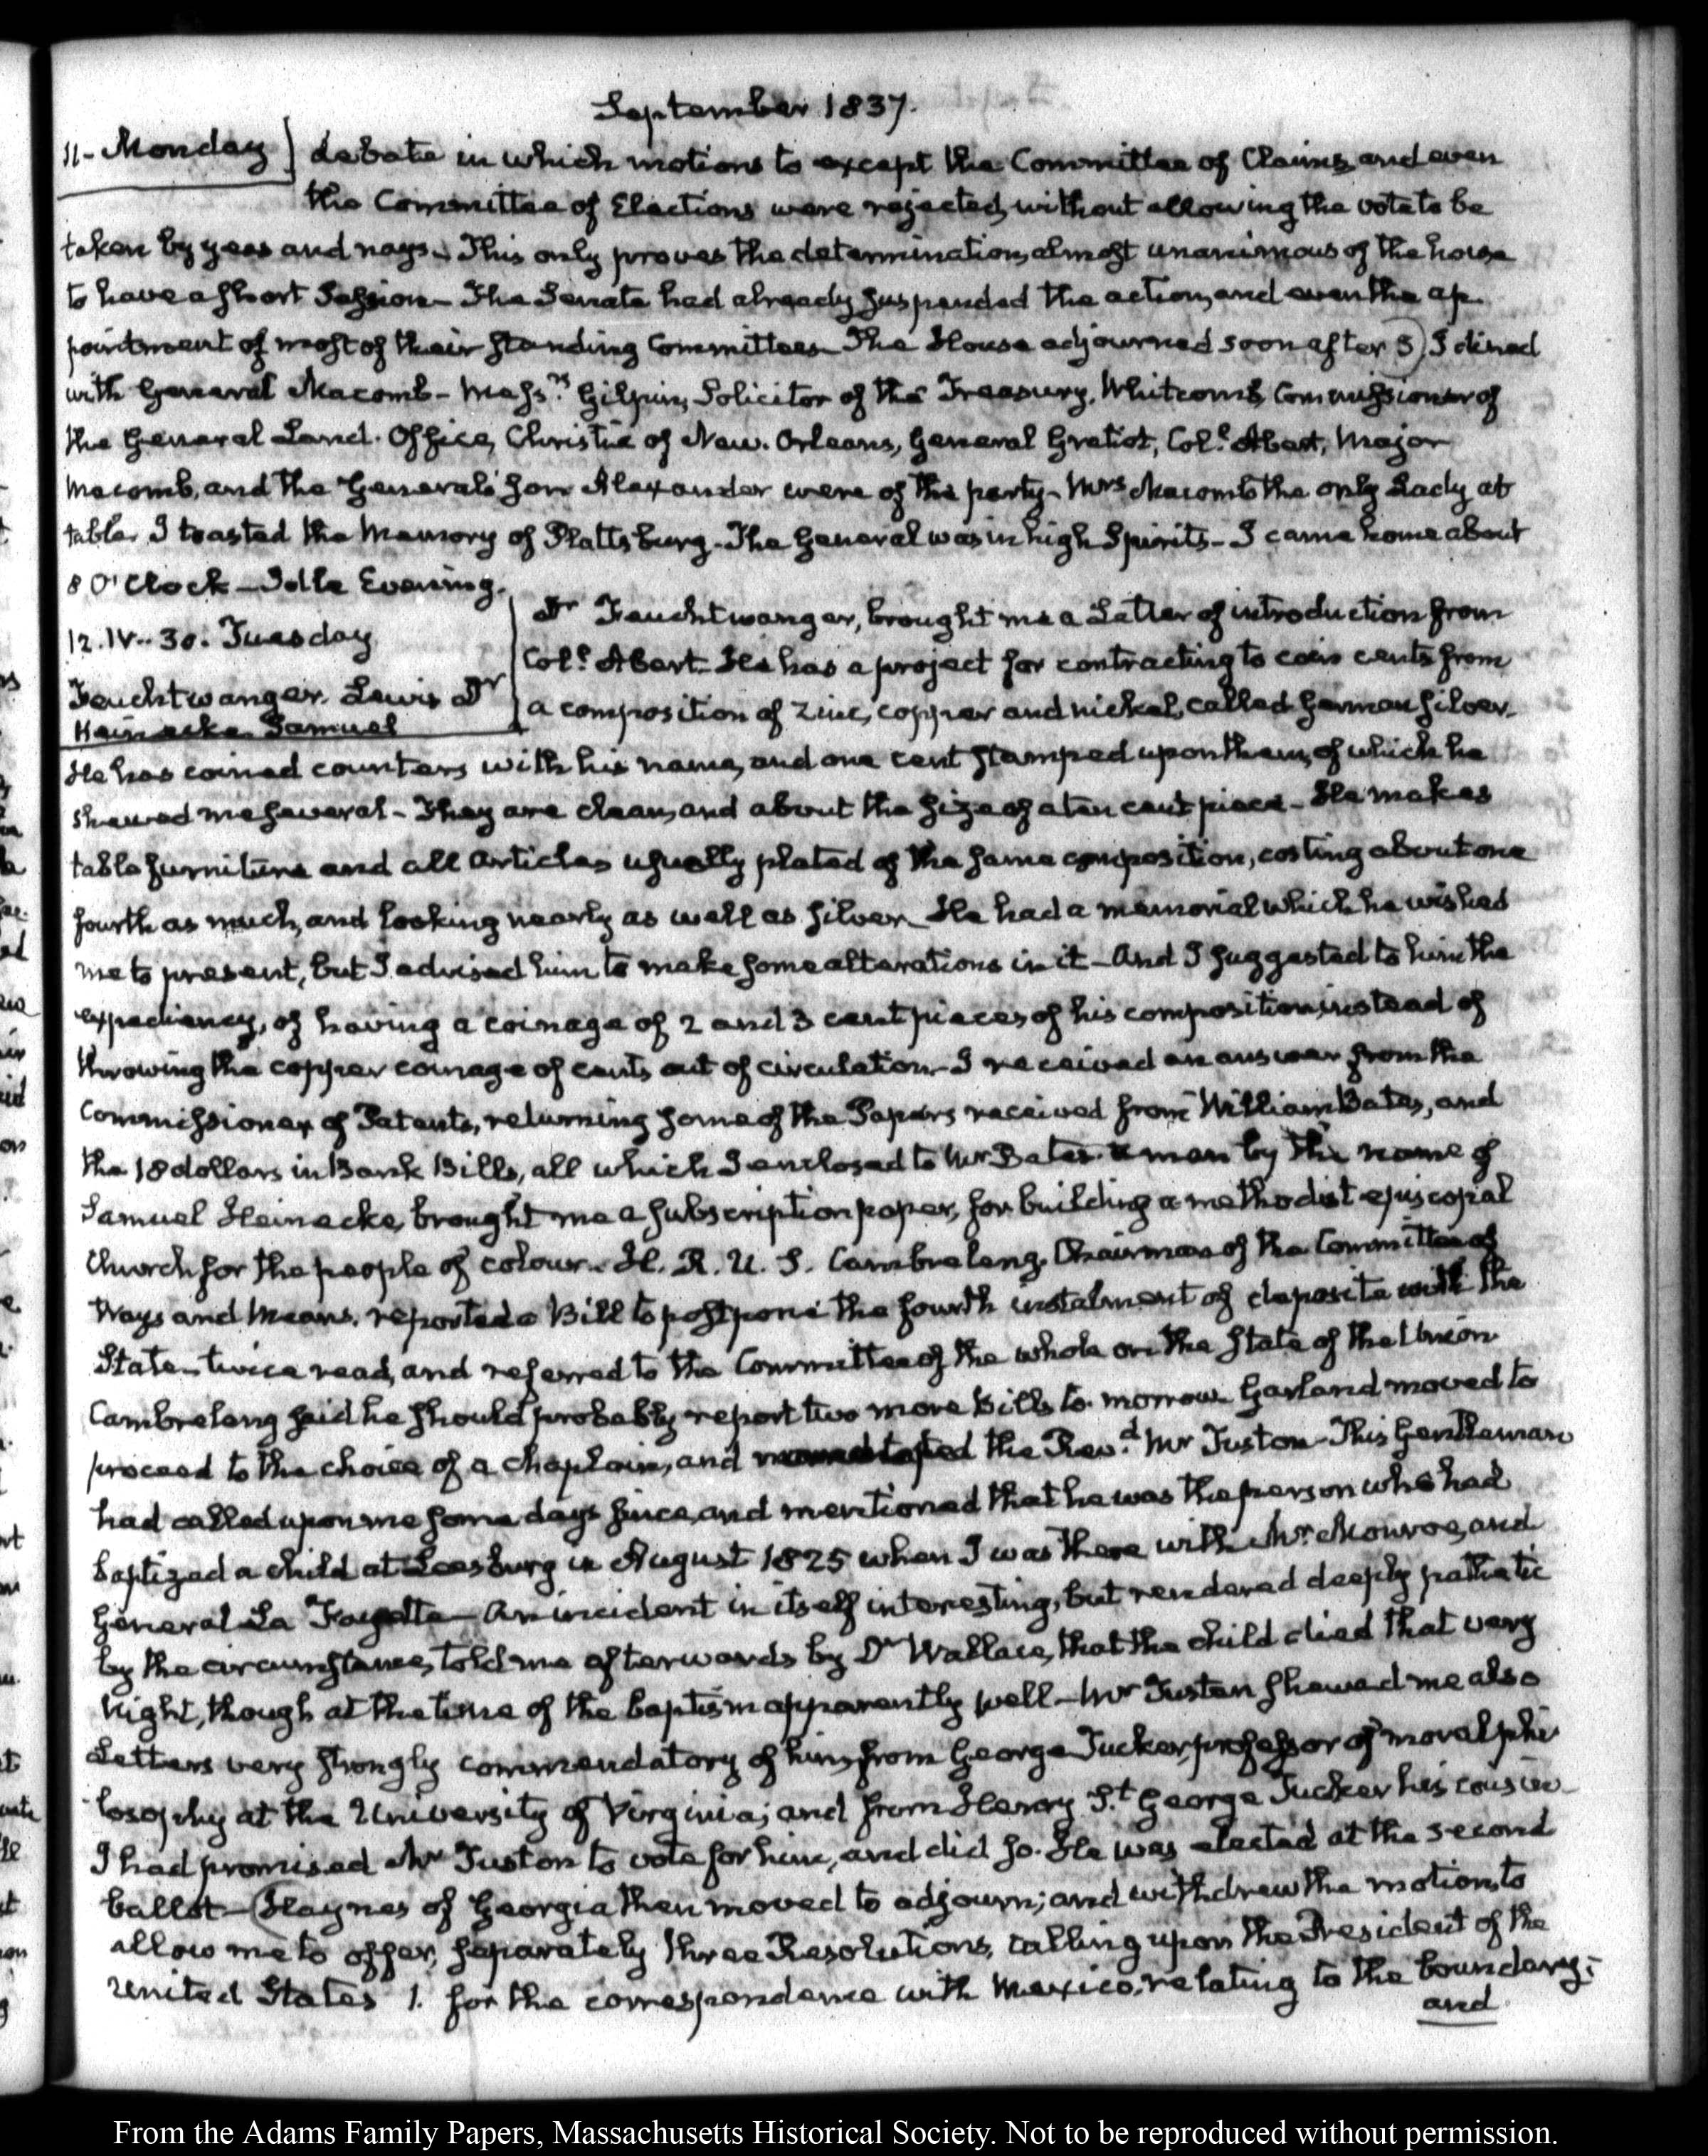 September 1837.
11- Monday debate in which motions to except the Committee of Claims, and even
the Committee of Elections were rejected, without allowing the vote to be
taken by yeas and nays. This only proves the determination, almost unanimous of the house
to have a short Session- The Senate had already suspended the action, and even the ap-
pointment of most of their standing Committees- The House adjourned soon after 3) I dined
with General Macomb- Mess.rs Gilpin, Solicitor of the Treasury, Whitcomb, Commissioner of
the General Land. Office, Christie of New. Orleans, General Gratiot, Col.l Abert, Major
Macomb, and the General's son Alexander were of the party- Mrs Macomb the only Lady at
table. I toasted the Memory of Plattsburg- The General was in high Spirits- I came home about
8 O'Clock- Idle Evening.
12. IV.. 30. Tuesday
Feuchtwanger. Lewis Dr
Heinecke Samuel
Dr Feuchtwanger, brought me a Letter of introduction from
Col.l Abert. He has a project for contracting to coin cents from
a composition of Zinc, copper and nickel, called German silver.
He has coined counters with his name, and one cent stamped upon them, of which he
shewed me several- They are clean, and about the size of a ten cent piece- He makes
table furniture and all articles usually plated of the same composition, costing about one
fourth as much, and looking nearly as well as silver- He had a memorial which he wished
me to present, but I advised him to make some alterations in it- And I suggested to him the
expediency, of having a coinage of 2 and 3 cent pieces of his composition, instead of
throwing the copper coinage of cents, out of circulation- I received an answer from the
Commissioner of Patents, returning some of the Papers received from William Bates, and
the 18 dollars in Bank Bills, all which I enclosed to Mr Bates. A man by the name of
Samuel Heinecke, brought me a subscription paper, for building a methodist episcopal
Church for the people of colour. H. R. U. S. Cambreleng, Chairman of the Committee of
Ways and Means, reported a Bill to postpone the fourth instalment of deposite with the
State- twice read, and referred to the Committee of the whole on the state of the Union
Cambreleng said he should probably report two more Bills to-morrow. Garland moved to
proceed to the choice of a chaplain, and the Rev.d Mr Tuston- This Gentleman
had called upon me some days since, and mentioned that he was the person who had
baptized a child at Leesburg in August 1825 when I was there with Mr. Monroe, and
General La Fayette- An incident in itself interesting, but rendered deeply pathetic
by the circumstance, told me afterwards by Dr Wallace, that the child died that very
Night, though at the time of the baptism apparently well- Mr Tuston shewed me also
Letters very strongly commendatory of him, from George Tucker, professor of moral phi-
losophy at the University of Virginia; and from Henry S.t George Tucker his cousin-
I had promised Mr Tuston to vote for him, and did so. He was elected at the second
ballot- (Haynes of Georgia then moved to adjourn; and withdrew the motion, to
allow me to offer, separately three Resolutions, calling upon the President of the
United States 1. for the correspondence with Mexico, relating to the boundary;
and
From the Adams Family Papers, Massachusetts Historical Society. Not to be reproduced without permission.